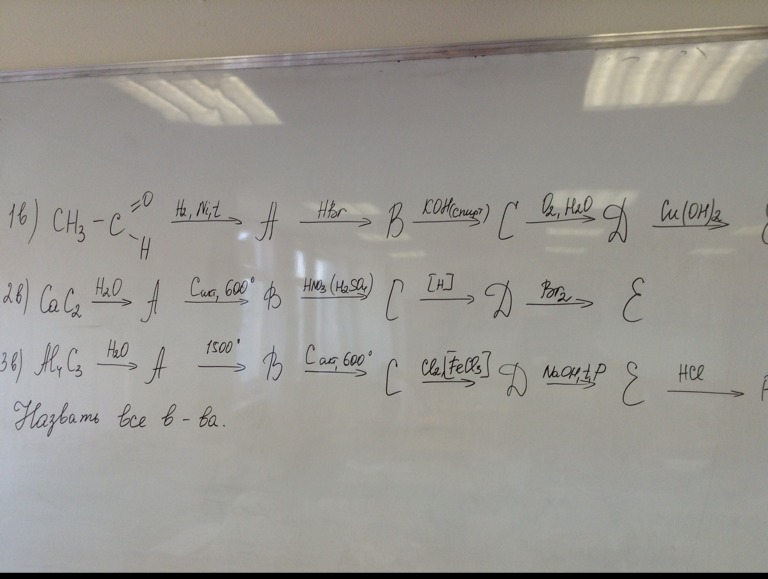 1в) CH₃-C=O H H₂, Ni, t A HBr B KOH(спирт) C O₂, H₂O D Cu(OH)₂ E
2в) CaC₂ H₂O A Cакт, 600° B HNO₃(H₂SO₄) C [H] D Br₂ E
3в) Al₄C₃ H₂O A 1500° B Cакт, 600° C Cl₂[FeCl₃] D NaOH, t, P E HCl F
Назвать все в-ва.